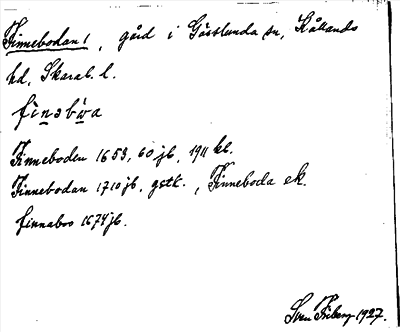 Finnebodan 1, gård i Göslunda sn, Kållands
hd, Skarab. l.
finəbωa
Finneboden 1653, 60 jb, 1911 kb.
Finnebodan 1710 jb, gstk., Finneboda ek.
finnabos 1674 jb.
Sven Friberg 1927.